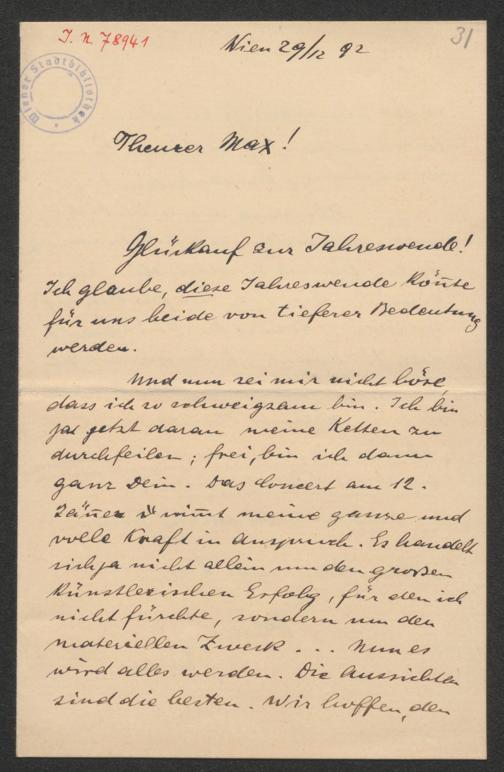 I. N. 78941
31
Wiener Stadtbibliothek
Wien 29/12 92
Theurer Max!
Glückauf zur Jahreswende!
Ich glaube, diese Jahreswende kön̄te
für uns beide von tieferer Bedeutung
werden.
Und nun sei mir nicht böse,
dass ich so schweigsam bin. Ich bin
ja jetzt daran meine Ketten zu
durchfeilen; frei, bin ich dann
ganz Dein. Das Concert am 12.
Jän̄er nim̄t meine ganze und
volle Kraft in Anspruch. Es handelt
sich ja nicht allein um den großen
künstlerischen Erfolg, für den ich
nicht fürchte, sondern um den
materiellen Zweck ... Nun es
wird alles werden. Die Aussichten
sind die besten. Wir hoffen, den